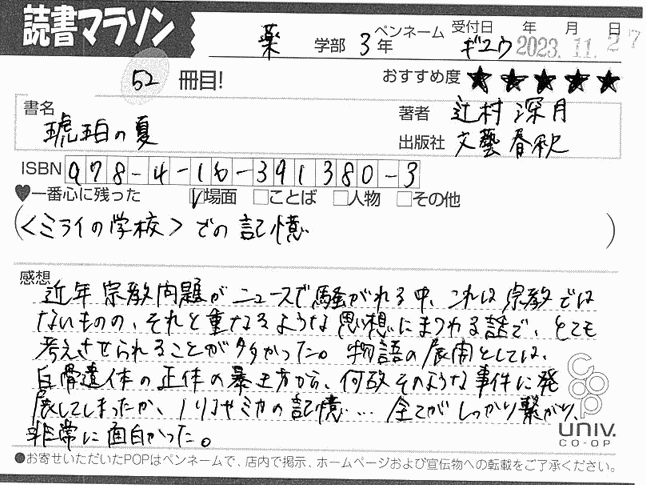 読書マラソン
薬 学部 3年 ペンネーム ギユウ 受付日 年 月 日 2023.11.27
52 冊目! おすすめ度 ★★★★★
書名 琥珀の夏
著者 辻村 深月
出版社 文藝春秋
ISBN 978-4-16-391380-3
♥一番心に残った ☑場面 □ことば □人物 □その他
(<ミライの学校> での記憶 )
感想
近年宗教問題がニュースで騒がれる中、これは宗教では
ないものの、それと重なるような思想にまつわる話で、とても
考えさせられることが多かった。物語の展開としては、
白骨遺体の正体の暴き方から、何故そのような事件に発
展してしまったか、ノリコやミカの記憶… 全てがしっかり繋がり、
非常に面白かった。
coop
UNIV.
CO-OP
●お寄せいただいたPOPはペンネームで、店内で掲示、ホームページおよび宣伝物への転載をご了承ください。